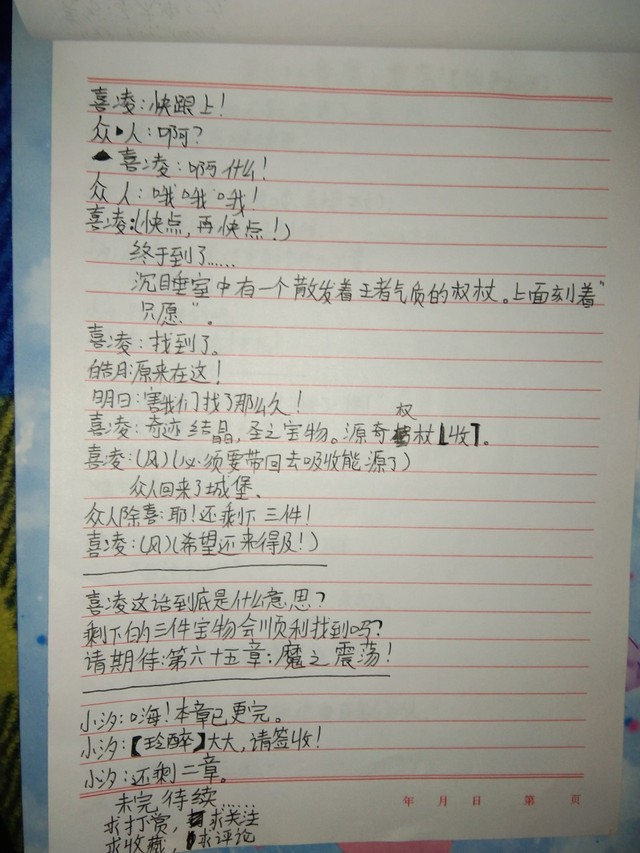 喜凌:快跟上!
众人:啊?
喜凌:啊什么!
众人:哦哦哦!
喜凌:(快点,再快点!)
终于到了……
沉睡室中有一个散发着王者气质的权杖。上面刻着“
只愿”。
喜凌:找到了。
皓月:原来在这!
明日:害我们找了那么久!
喜凌:奇迹结晶,圣之宝物。源奇权杖【收】。
喜凌:(风)(必须要带回去吸收能源了)
众人回来了城堡.
众人除喜:耶!还剩下三件!
喜凌:(风)(希望还来得及!)
喜凌这话到底是什么意思?
剩下的三件宝物会顺利找到吗?
请期待:第六十五章:魔之震荡!
小汐:嗨!本章已更完。
小汐:【玲醉】大大,请签收!
小汐:还剩二章。
未完待续……
年 月 日 第 页
求打赏,求关注
求收藏,求评论